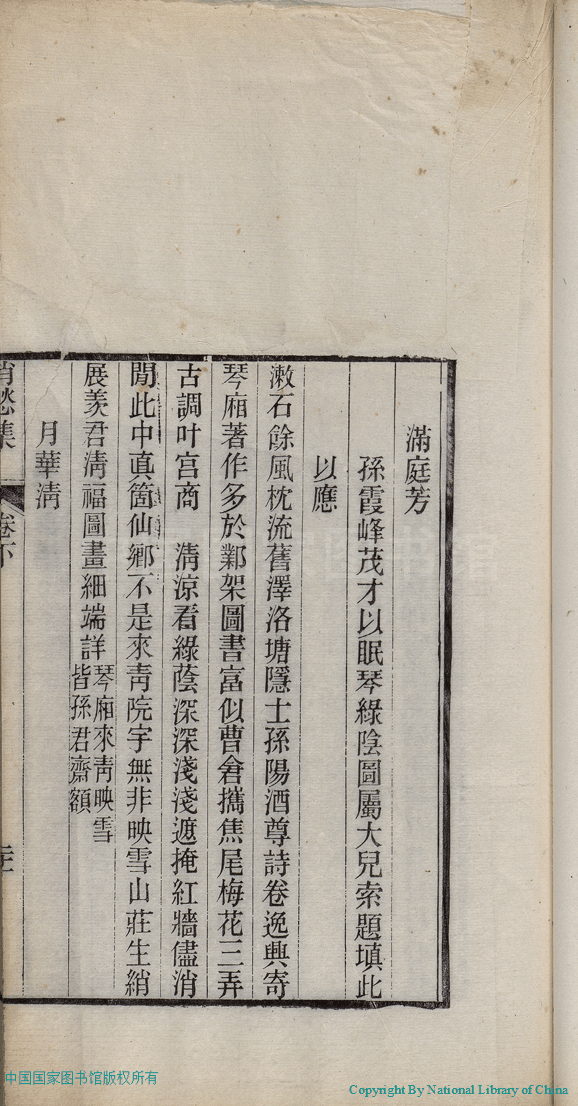 滿庭芳
孫霞峰茂才以眠琴綠陰圖屬大兒索題填此
以應
漱石餘風枕流舊澤洛塘隱士孫陽酒尊詩卷逸興寄
琴廂著作多於鄴架圖書富似曹倉攜焦尾梅花三弄
古調叶宮商　清涼看綠蔭深深淺淺遮掩紅牆儘消
閒此中真箇仙鄉不是來靑院宇無非映雪山莊生綃
展羨君清福圖畫細端詳琴廂來靑映雪
皆孫君齋額
月華淸
消愁集
卷下
中国国家图书馆版权所有
Copyright By National Library of China